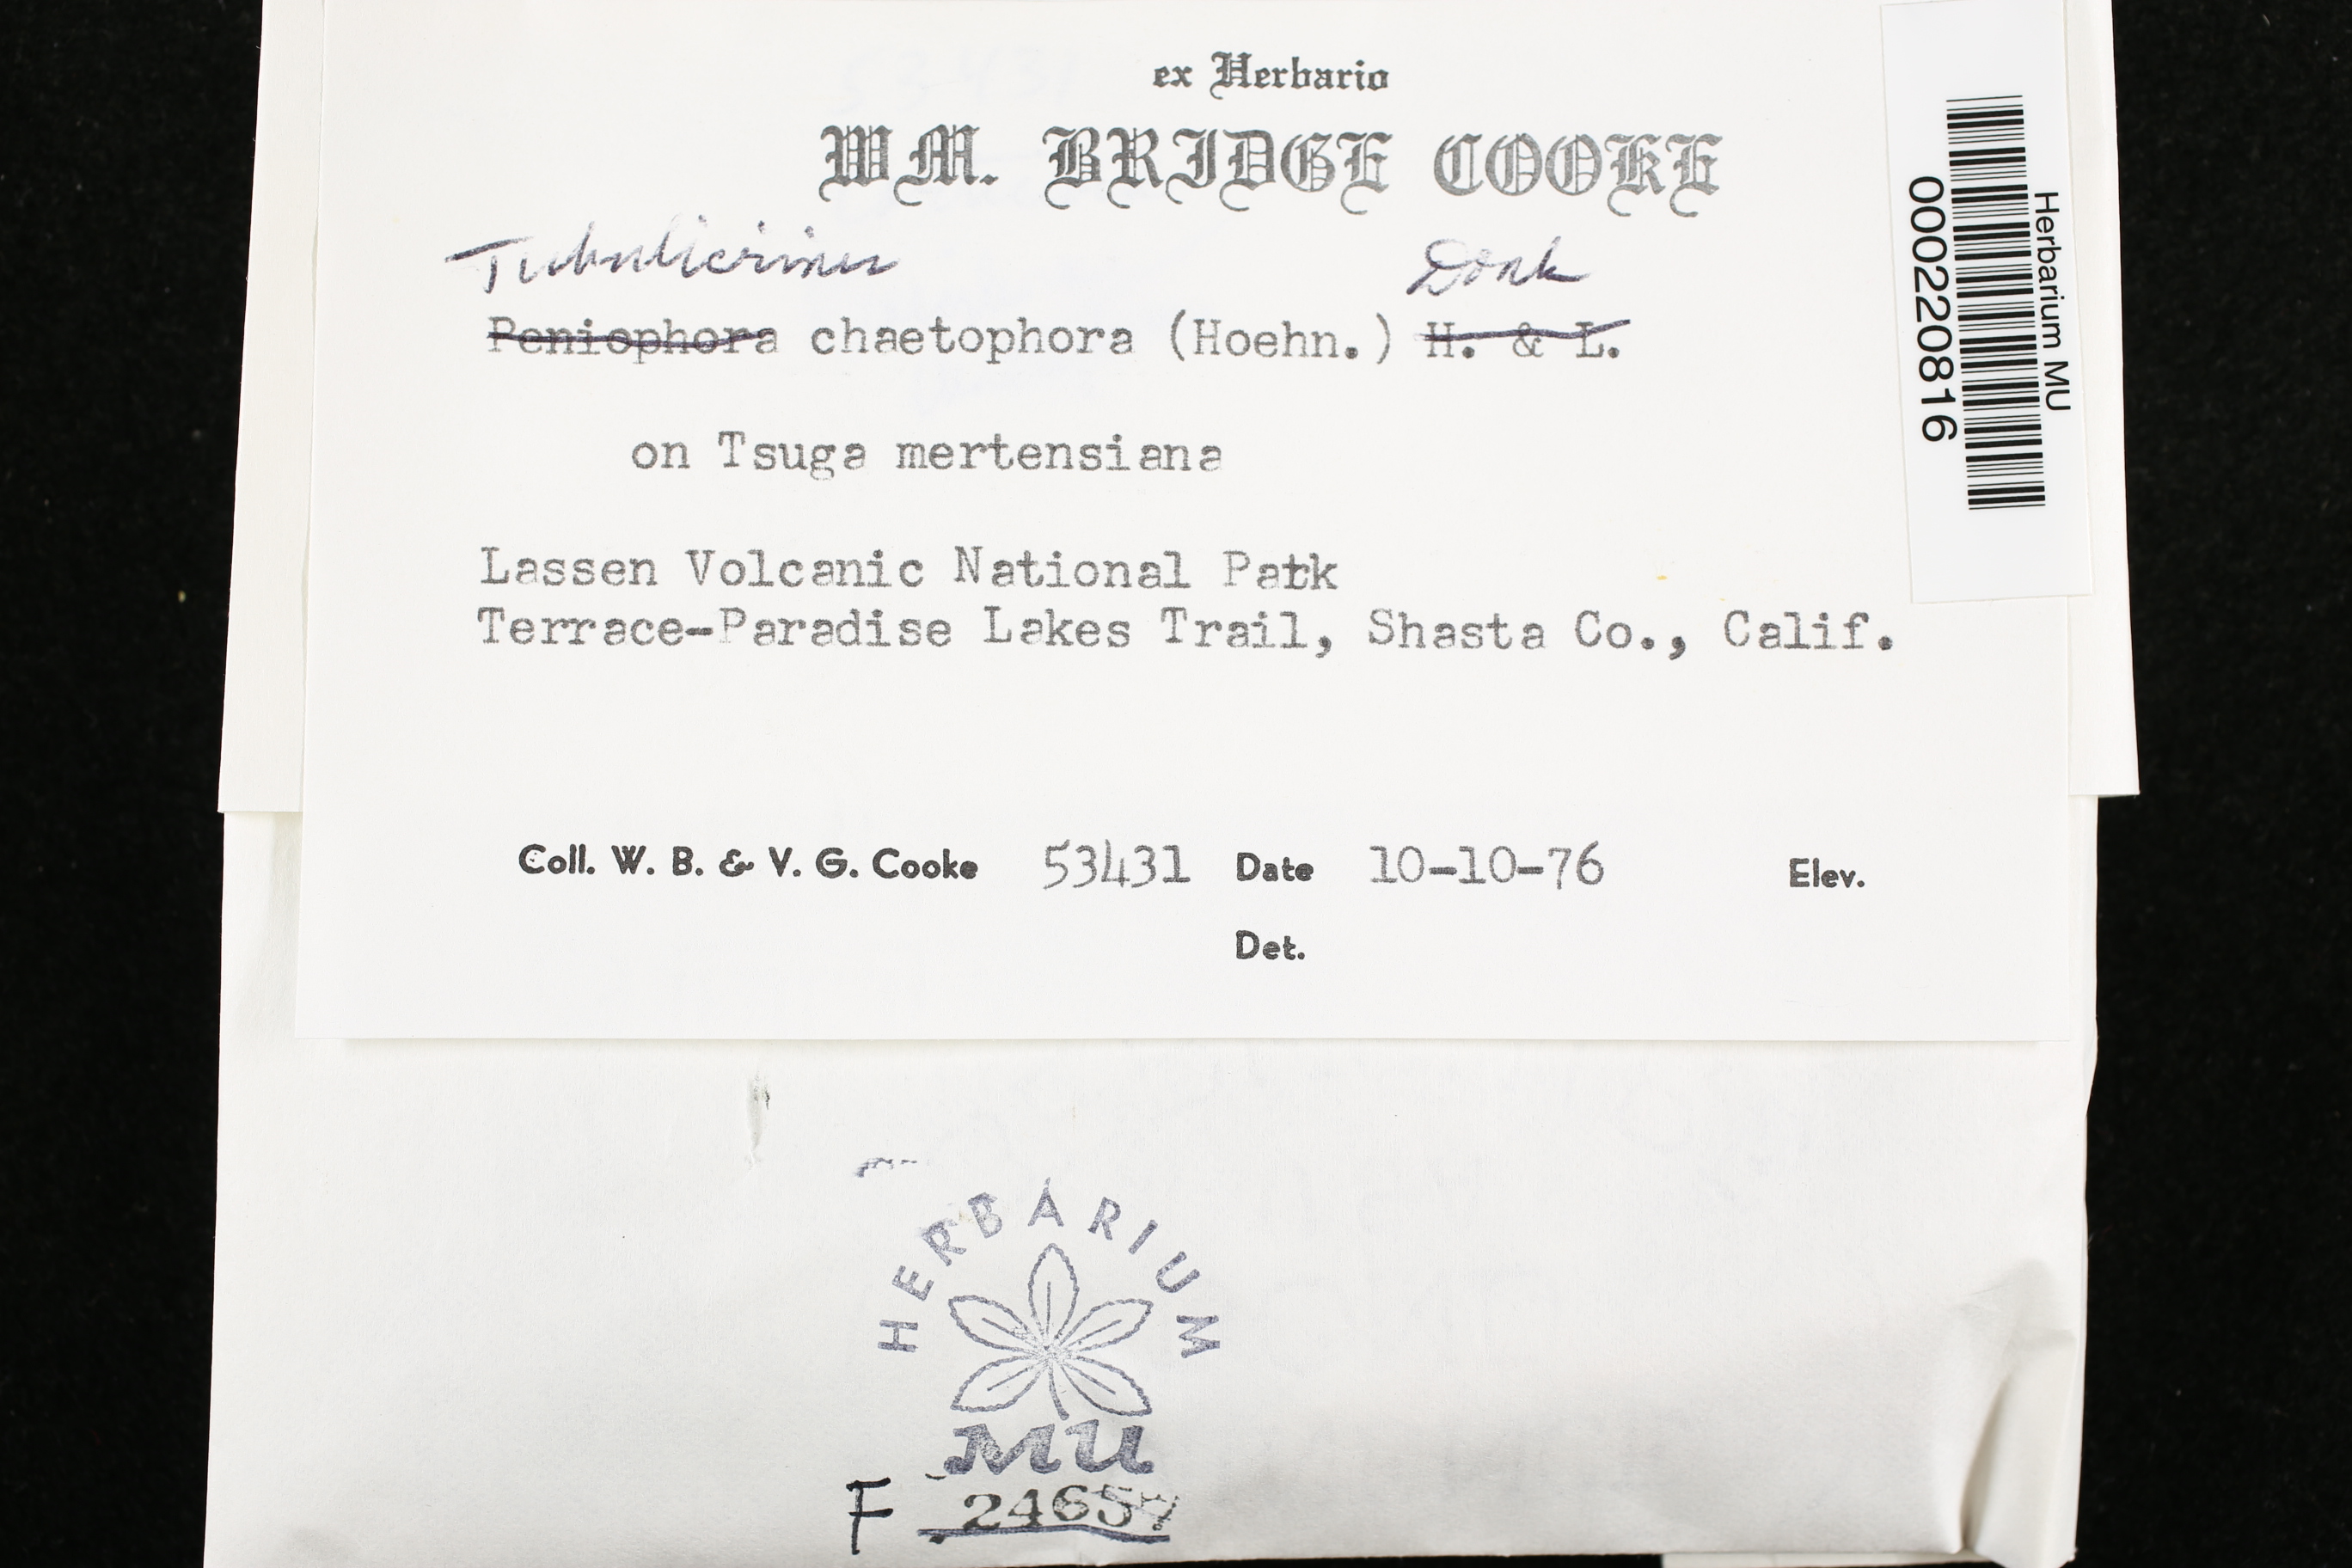 ex Herbario
WM. BRIDGE COOKE
Tubulicrinis Donk
Peniophora chaetophora (Hoehn.) H. & L.
on Tsuga mertensiana
Lassen Volcanic National Park
Terrace-Paradise Lakes Trail, Shasta Co., Calif.
Coll. W. B. & V. G. Cooke 53431 Date 10-10-76 Elev.
Det.
Herbarium MU
000220816
HERBARIUM
MU
F